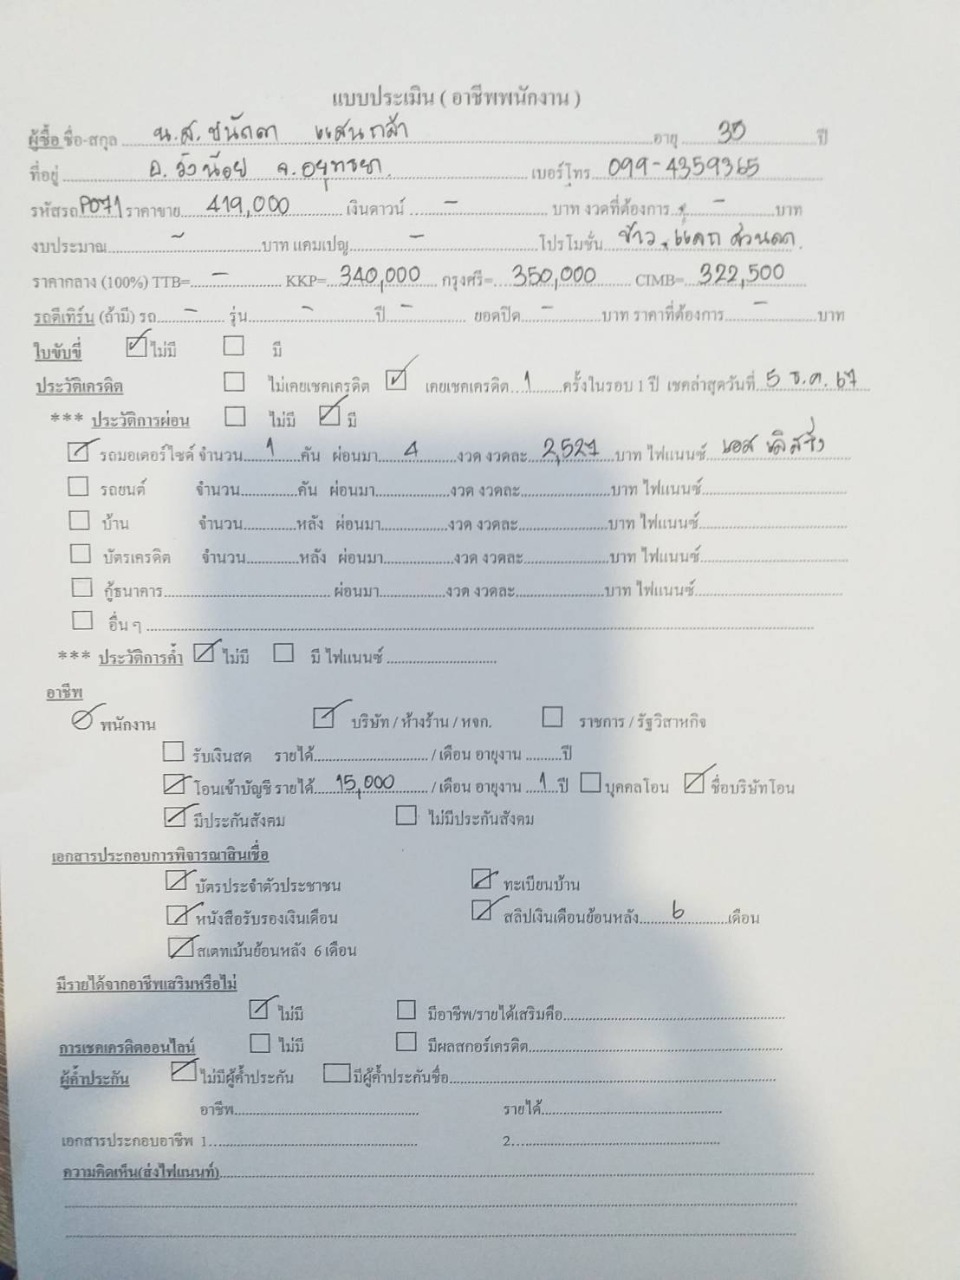 แบบประเมิน ( อาชีพพนักงาน )
ผู้ซื้อ ชื่อ-สกุล น.ส. ชนัดดา แสนกล้า อายุ 35 ปี
ที่อยู่ อ. วังน้อย จ. อยุทธยา เบอร์โทร 099-4359365
รหัสรถ P071 ราคาขาย 419,000 เงินดาวน์ - บาท งวดที่ต้องการ - บาท
งบประมาณ - บาท แคมเปญ - โปรโมชั่น ข้าว, แคด ส่วนลด
ราคากลาง (100%) TTB= - KKP= 340,000 กรุงศรี= 350,000 CIMB= 322,500
รถตีเทิร์น (ถ้ามี) รถ - รุ่น - ปี - ยอดปิด - บาท ราคาที่ต้องการ - บาท
ใบขับขี่ ไม่มี มี
ประวัติเครดิต ไม่เคยเชคเครดิต เคยเชคเครดิต 1 ครั้งในรอบ 1 ปี เชคล่าสุดวันที่ 5 ธ.ค. 67
*** ประวัติการผ่อน ไม่มี มี
รถมอเตอร์ไซด์ จำนวน 1 คัน ผ่อนมา 4 งวด งวดละ 2,527 บาท ไฟแนนซ์ เอส ลิสซิ่ง
รถยนต์ จำนวน คัน ผ่อนมา งวด งวดละ บาท ไฟแนนซ์
บ้าน จำนวน หลัง ผ่อนมา งวด งวดละ บาท ไฟแนนซ์
บัตรเครดิต จำนวน หลัง ผ่อนมา งวด งวดละ บาท ไฟแนนซ์
กู้ธนาคาร ผ่อนมา งวด งวดละ บาท ไฟแนนซ์
อื่น ๆ
*** ประวัติการค้ำ ไม่มี มี ไฟแนนซ์
อาชีพ
พนักงาน บริษัท / ห้างร้าน / หจก. ราชการ / รัฐวิสาหกิจ
รับเงินสด รายได้ / เดือน อายุงาน ปี
โอนเข้าบัญชี รายได้ 15,000 / เดือน อายุงาน 1 ปี บุคคลโอน ชื่อบริษัทโอน
มีประกันสังคม ไม่มีประกันสังคม
เอกสารประกอบการพิจารณาสินเชื่อ
บัตรประจำตัวประชาชน ทะเบียนบ้าน
หนังสือรับรองเงินเดือน สลิปเงินเดือนย้อนหลัง 6 เดือน
สเตทเม้นย้อนหลัง 6 เดือน
มีรายได้จากอาชีพเสริมหรือไม่
ไม่มี มีอาชีพ/รายได้เสริมคือ
การเชคเครดิตออนไลน์ ไม่มี มีผลสกอร์เครดิต
ผู้ค้ำประกัน ไม่มีผู้ค้ำประกัน มีผู้ค้ำประกันชื่อ
อาชีพ รายได้
เอกสารประกอบอาชีพ 1 2
ความคิดเห็น(ส่งไฟแนนท์)